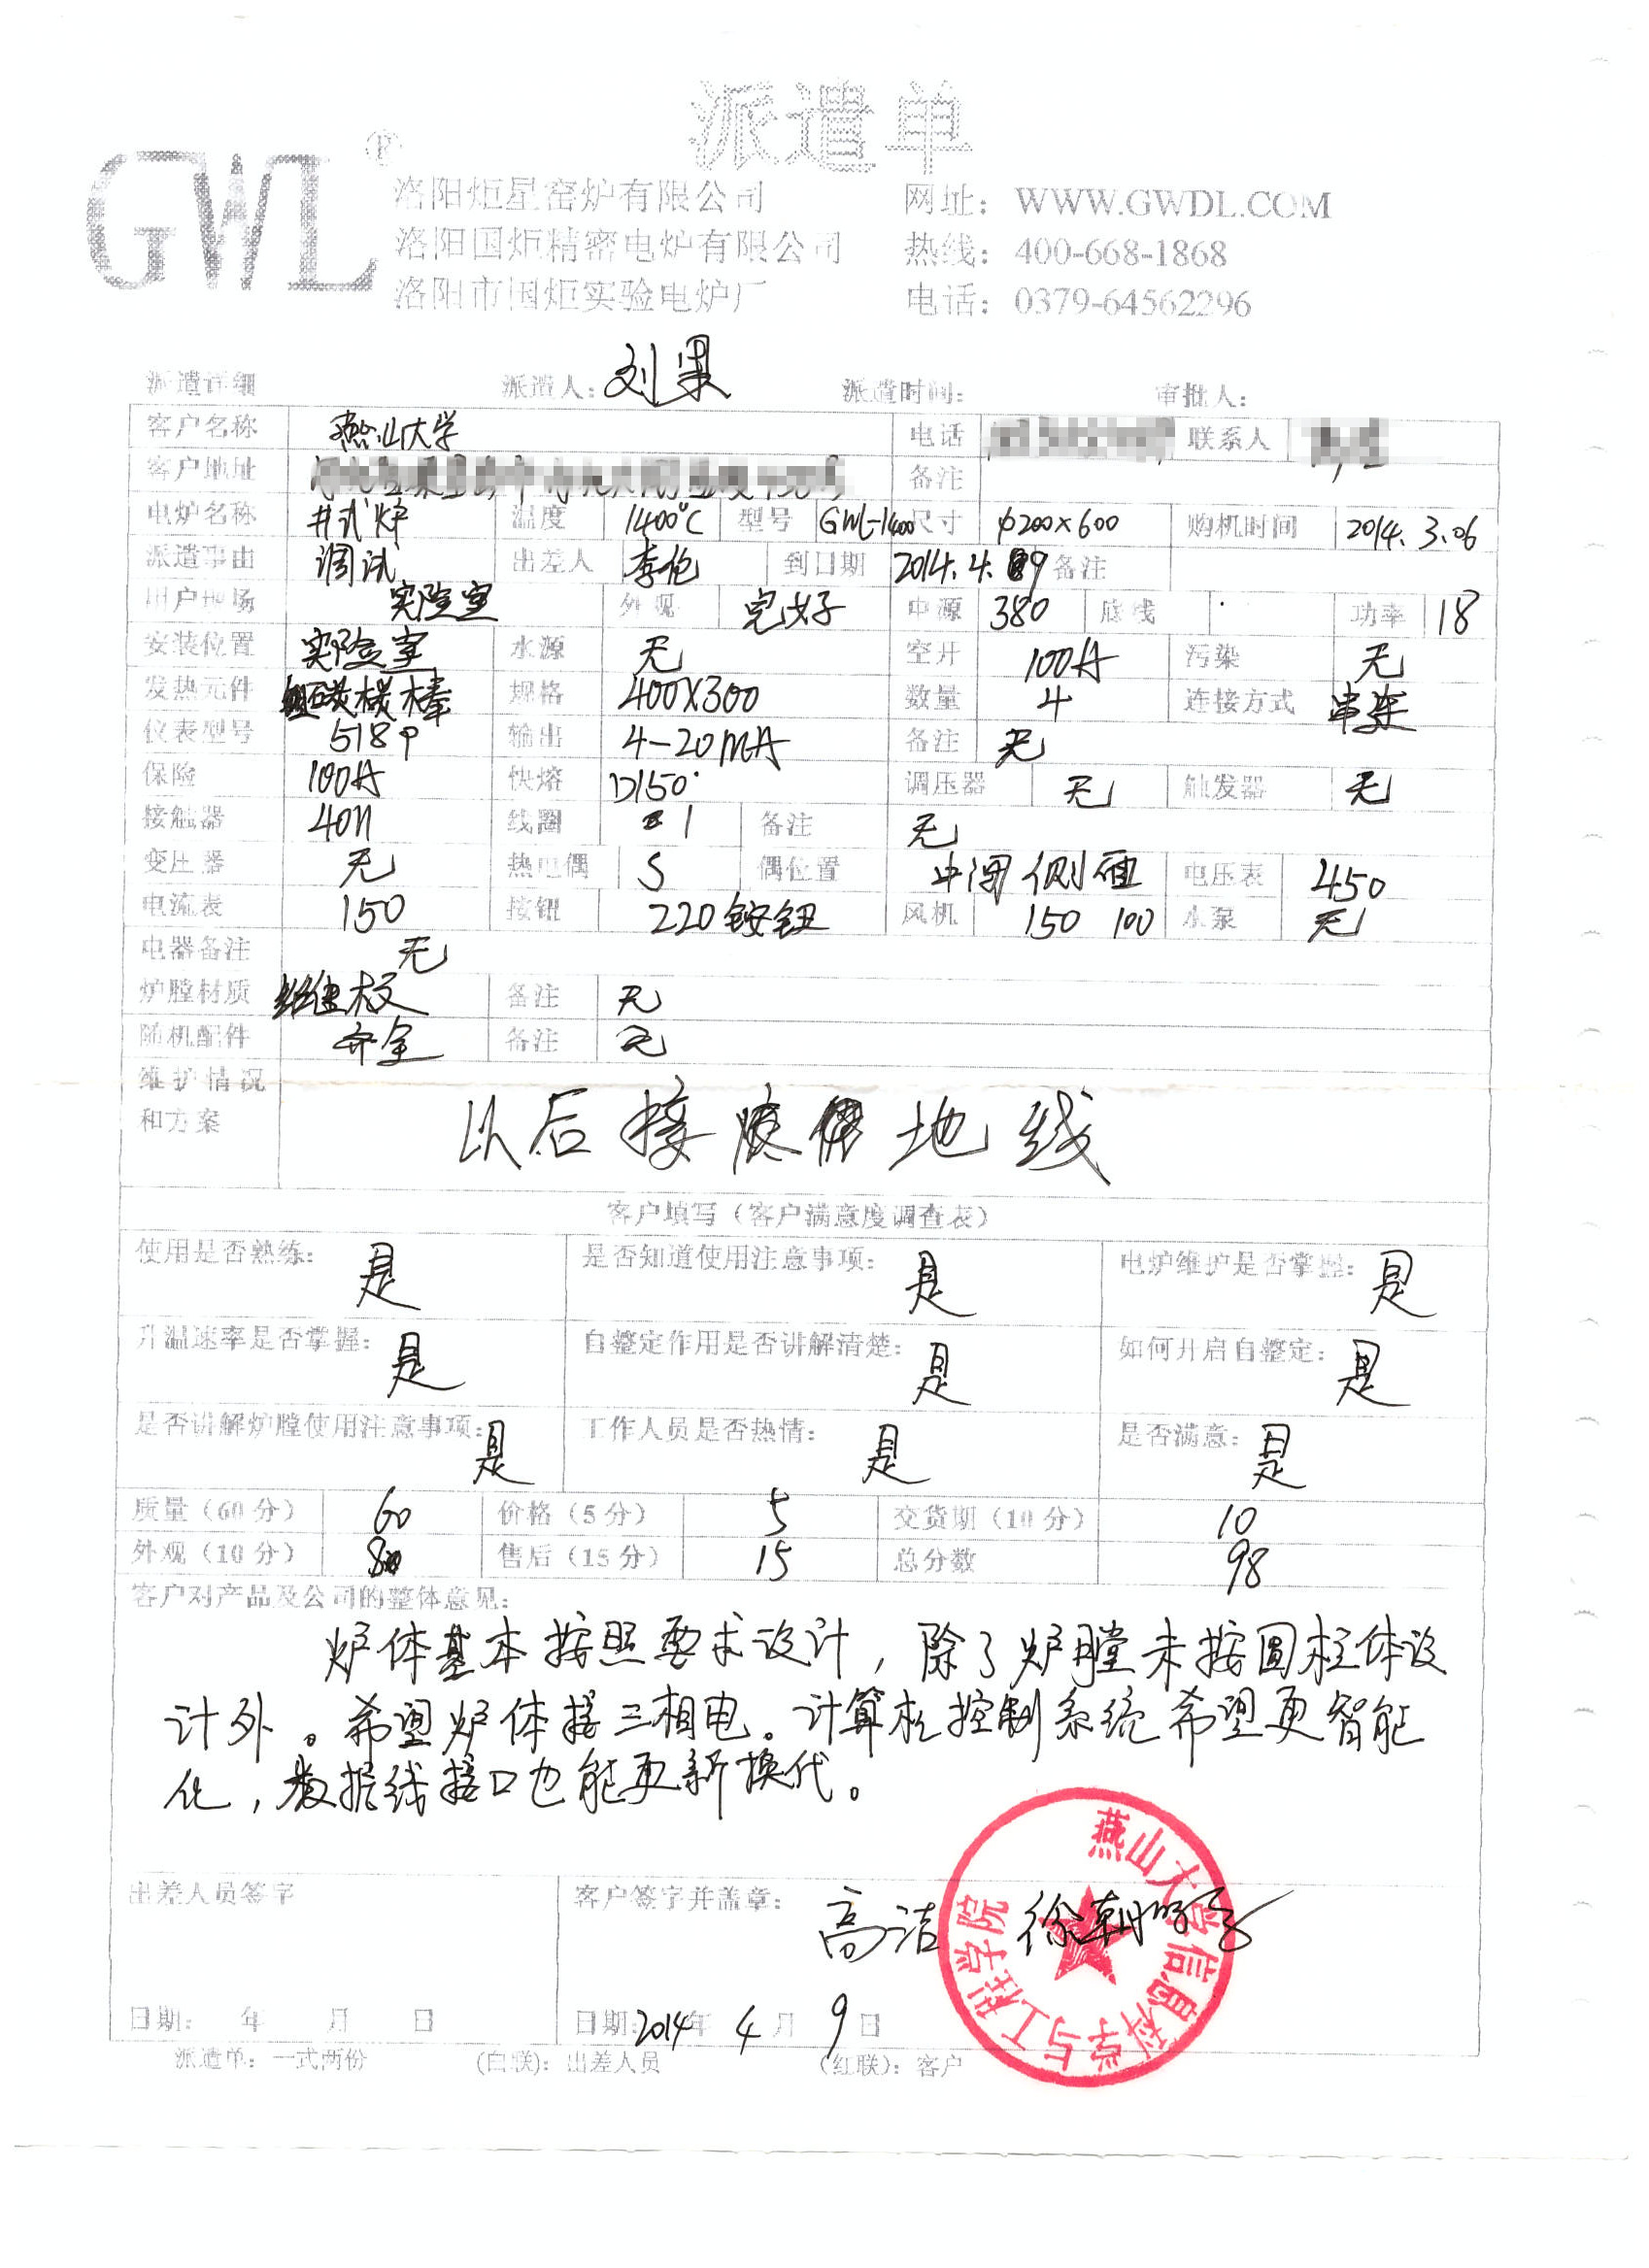 派遣单
GWL®
洛阳炬星窑炉有限公司 网址：WWW.GWDL.COM
洛阳国炬精密电炉有限公司 热线：400-668-1868
洛阳市国炬实验电炉厂 电话：0379-64562296
派遣详细 派遣人：刘果 派遣时间： 审批人：
客户名称 燕山大学 电话 联系人
客户地址 备注
电炉名称 井式炉 温度 1400℃ 型号 GWL-1400 尺寸 φ200×600 购机时间 2014.3.06
派遣事由 调试 出差人 李伦 到日期 2014.4.9 备注
用户现场 实验室 外观 完好 电源 380 底线 功率 18
安装位置 实验室 水源 无 空开 100A 污染 无
发热元件 硅碳棒 规格 400X300 数量 4 连接方式 串连
仪表型号 518P 输出 4-20mA 备注 无
保险 100A 快熔 D150 调压器 无 触发器 无
接触器 4011 线圈 1 备注 无
变压器 无 热电偶 S 偶位置 中间侧面 电压表 450
电流表 150 按钮 220铵钮 风机 150 100 水泵 无
电器备注 无
炉膛材质 纤维板 备注 无
随机配件 齐全 备注 无
维护情况
和方案 以后接 地线
客户填写（客户满意度调查表）
使用是否熟练：是 是否知道使用注意事项：是 电炉维护是否掌握：是
升温速率是否掌握：是 自整定作用是否讲解清楚：是 如何开启自整定：是
是否讲解炉膛使用注意事项：是 工作人员是否热情：是 是否满意：是
质量（60分） 60 价格（5分） 5 交货期（10分） 10
外观（10分） 8 售后（15分） 15 总分数 98
客户对产品及公司的整体意见：
炉体基本按照要求设计，除了炉膛未按圆柱体设
计外。希望炉体接三相电。计算机控制系统希望更智能
化，数据线接口也能更新换代。
燕山大学信息科学与工程学院
出差人员签字 客户签字并盖章：高洁 徐朝
日期： 年 月 日 日期：2014年4月9日
派遣单：一式两份 （白联）：出差人员 （红联）：客户